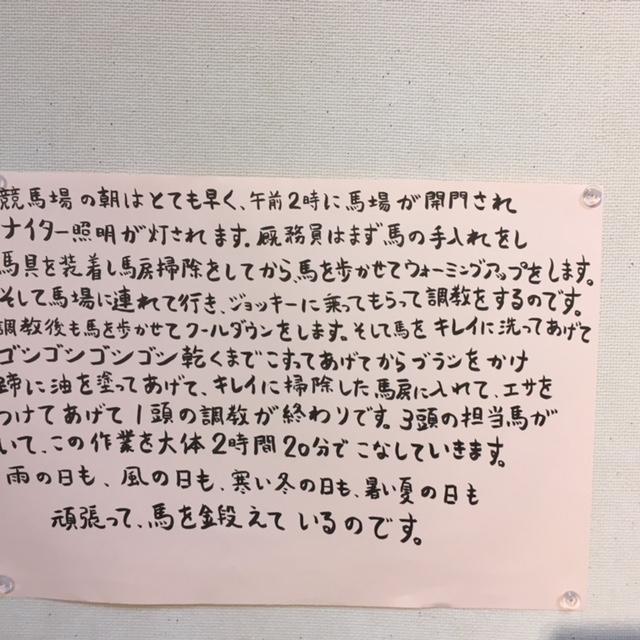 競馬場の朝はとても早く、午前2時に馬場が開門され
ナイター照明が灯されます。厩務員はまず馬の手入れをし
馬具を装着し馬房掃除をしてから馬を歩かせてウォーミングアップをします。
そして馬場に連れて行き、ジョッキーに乗ってもらって調教をするのです。
調教後も馬を歩かせてクールダウンをします。そして馬をキレイに洗ってあげて
ゴシゴシゴシゴシ乾くまでこすってあげてからブラシをかけ
蹄に油を塗ってあげて、キレイに掃除した馬房に入れて、エサを
つけてあげて1頭の調教が終わりです。3頭の担当馬が
いて、この作業を大体2時間20分でこなしていきます。
雨の日も、風の日も、寒い冬の日も、暑い夏の日も
頑張って、馬を鍛えているのです。